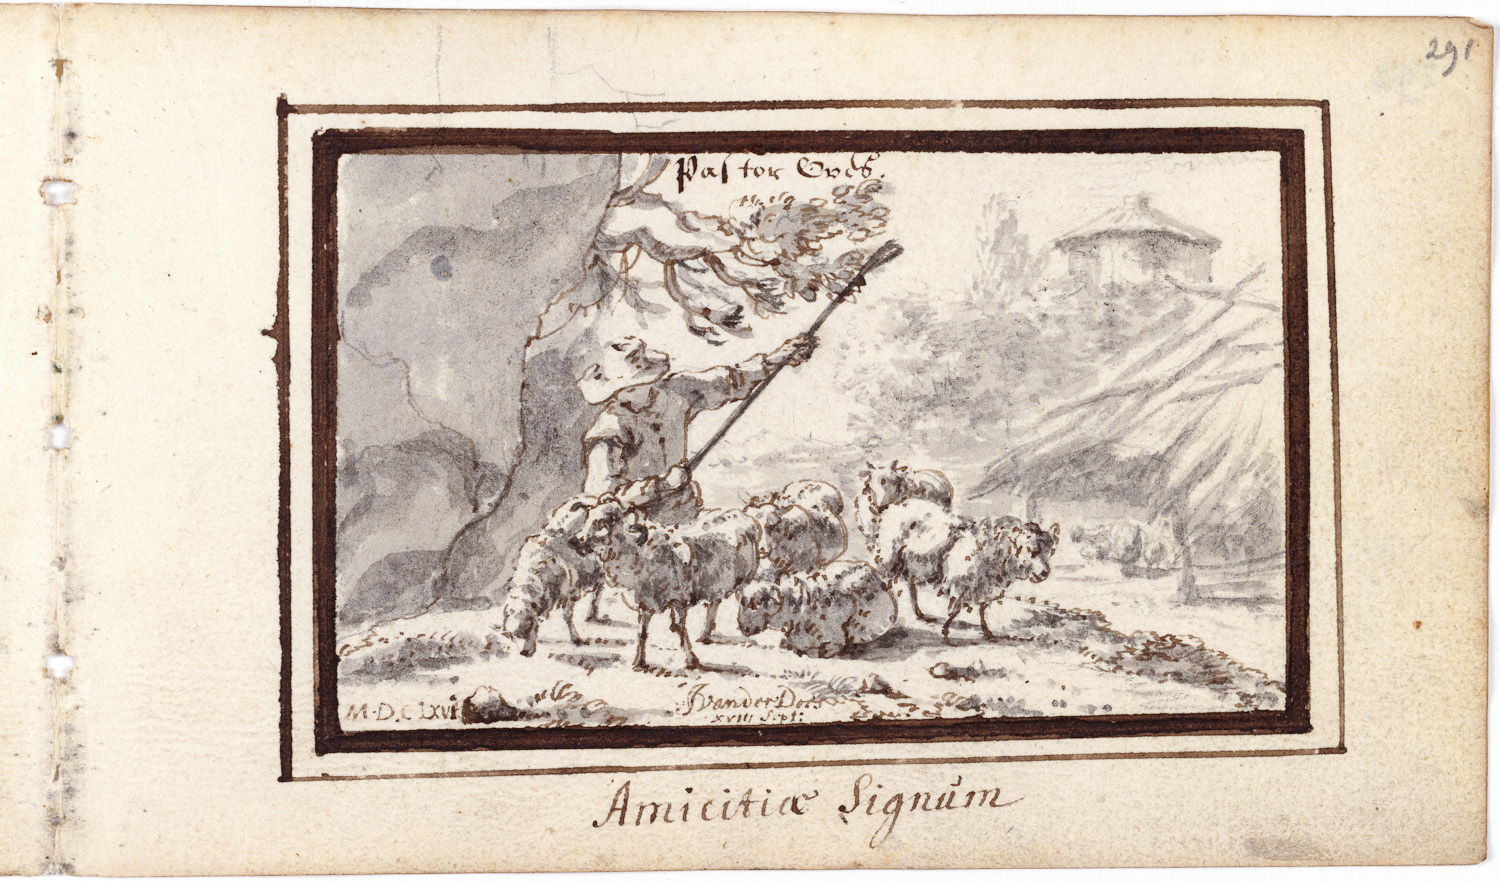 291
Pastor Oves.
M·D·C LXVI
JvanderDoes
XVIII Sept:
Amicitiæ Signŭm